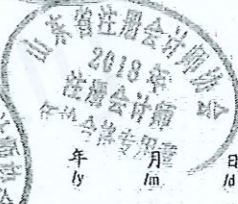 山东省注册会计师协会
2018 年
注册会计师
年检合格专用章
年 月 日
/y /m /d